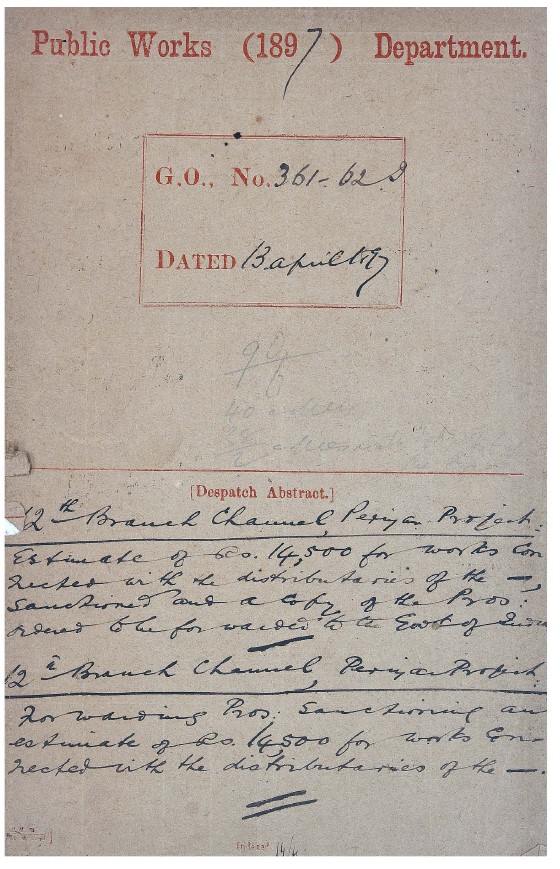 Public Works (1897) Department.
G.O., No. 361-62 I
DATED 13 april 1897
[Despatch Abstract.]
12th Branch Channel, Periyar Project:
Estimate of Rs. 14,500 for works Con
nected with the distributaries of the —,
Sanctioned and a Copy of the Pros:
ordered to be forwarded to the Govt of India
12th Branch Channel, Periyar Project:
Forwarding Pros: Sanctioning an
estimate of Rs. 14,500 for works Con-
nected with the distributaries of the —.
Indexed 14/4